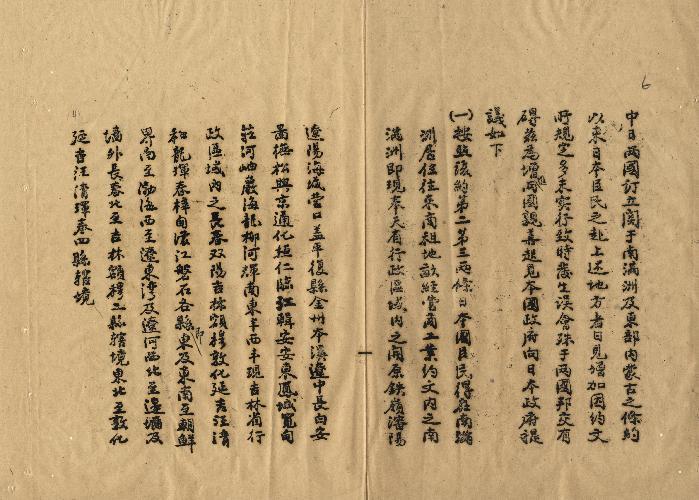 6
中日两國訂立關于南满洲及東部內蒙古之條約
以來日本臣民之赴上述地方者日見增加因約文
所規定多未实行致時悲生误會殊于两國邦交有
碍兹為增進两國親善起見本國政府向日本政府提
議如下
(一)按照該約第二第三两條日本國臣民得在南满
洲居住往來商租地畝經营商工業約文內之南
满洲即現奉天省行政區域內之開原鉄嶺瀋陽
遼陽海城营口盖平復縣金州本溪遼中長白安
圖撫松興京通化桓仁臨江輯安安東鳳城寬甸
莊河岫巖海龍柳河輝南東丰西丰現吉林省行
政區域內之長春双陽吉林額穆敦化延吉汪清
和龍琿春樺甸濛江磐石各縣即東及東南至朝鮮
界南至渤海西至遼東湾及遼河西北至邊墻及
墻外長春北至吉林額穆二縣轄境東北至敦化
延吉汪清琿春四縣轄境